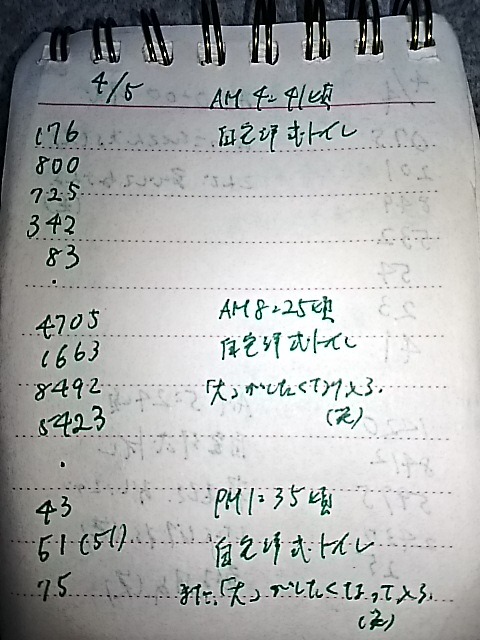 4/5
AM 4:41頃
176 自宅洋式トイレ
800
725
342
83
.
AM 8:25頃
4705
1663 自宅洋式トイレ
8492 「大」がしたくて入ってる.
5423 (笑)
.
43 PM 1:35頃
51(51) 自宅洋式トイレ
75 また、「大」がしたくなってる.
(笑)